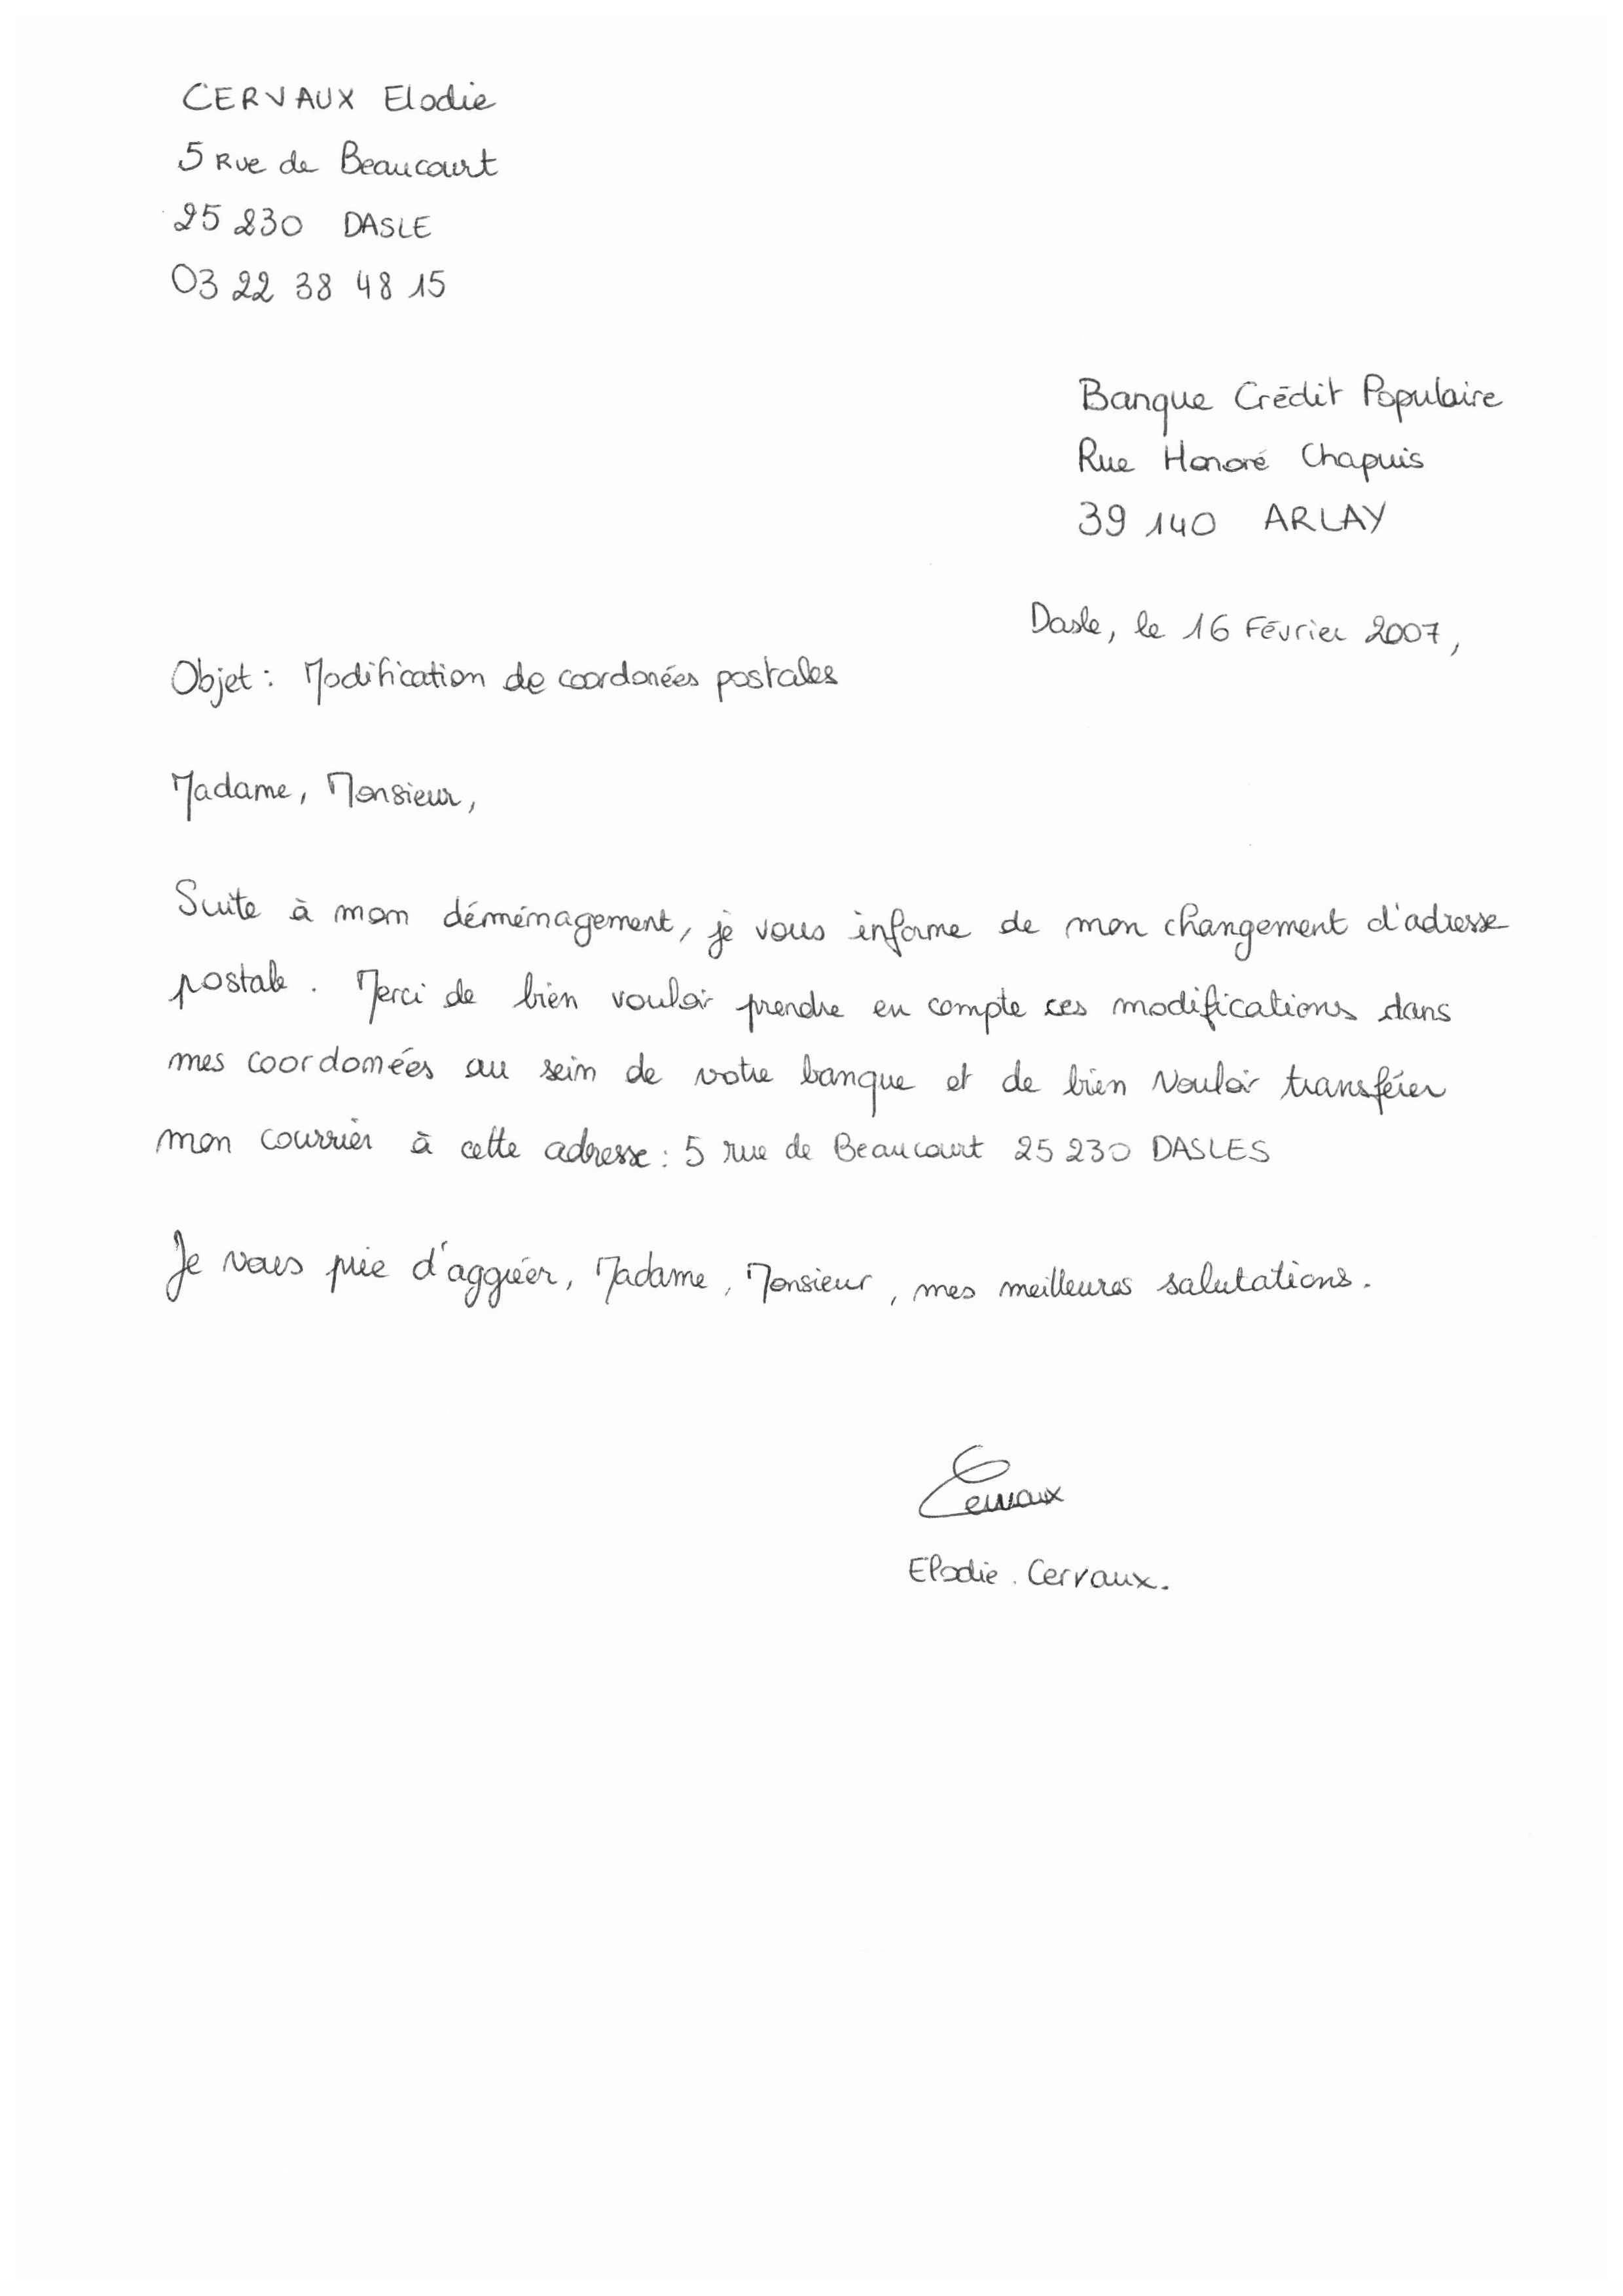 CERVAUX Elodie
5 Rue de Beaucourt
25 230 DASLE
03 22 38 48 15
Banque Crédit Populaire
Rue Honoré Chapuis
39 140 ARLAY
Dasle, le 16 Février 2007,
Objet : Modification de coordonées postales
Madame, Monsieur,
Suite à mon déménagement, je vous informe de mon changement d'adresse
postale. Merci de bien vouloir prendre en compte ces modifications dans
mes coordonées au sein de votre banque et de bien vouloir transférer
mon courrier à cette adresse : 5 rue de Beaucourt 25 230 DASLES
Je vous prie d'aggréer, Madame, Monsieur, mes meilleures salutations.
Cervaux
Elodie. Cervaux.